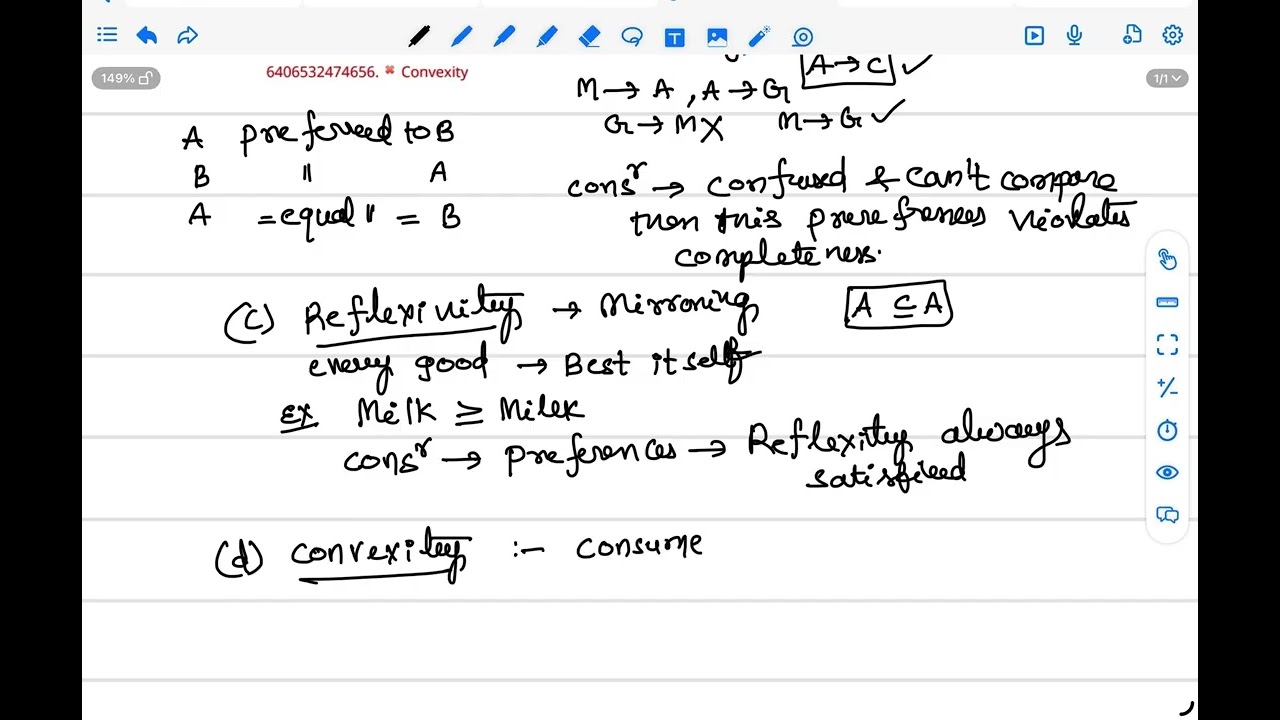 149%
6406532474656. ✖ Convexity
1/1
A → C ✓
M → A , A → G
G → M X M → G ✓
A preferred to B
B " A
A = equal " = B
consr → confused & can't compare
then this prerefrences vieolates
completeness.
(c) Reflexivity → Mirroring A ⊆ A
every good → Best itself
Ex Milk ≥ Milk
consr → preferences → Reflexity always
satisfied
(d) convexity :- consume